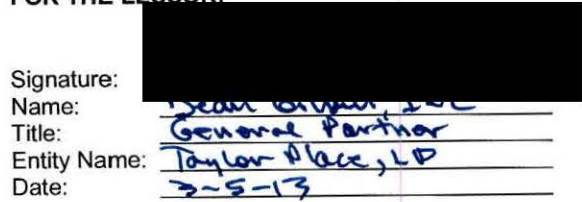 FOR THE LESSOR:
Signature:
Name:
Title: General Partner
Entity Name: Taylor Place, LP
Date: 3-5-13